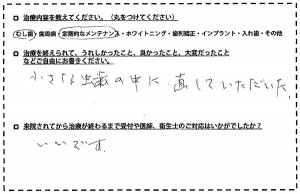 □ 治療内容を教えてください。（丸をつけてください）
むし歯・歯周病・定期的なメンテナンス・ホワイトニング・歯列矯正・インプラント・入れ歯・その他
□ 治療を終えられて、うれしかったこと、良かったこと、大変だったこと
などご自由にお書きください。
小さな虫歯の中に直していただいた。
□ 来院されてから治療が終わるまで受付や医師、衛生士のご対応はいかがでしたか？
いいです。